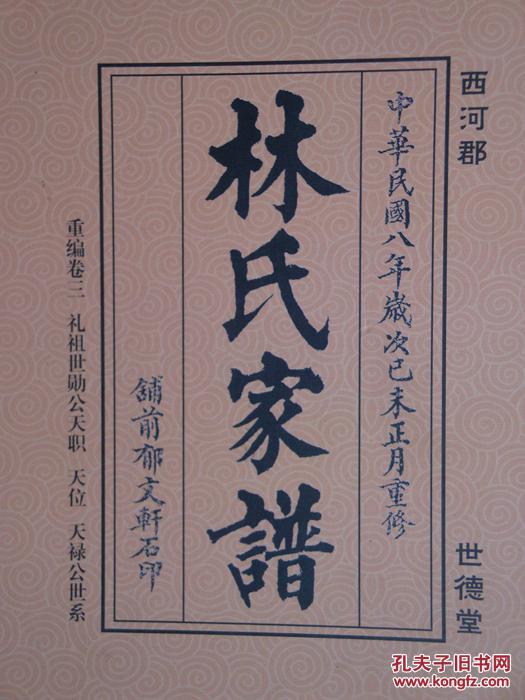 西河郡
世德堂
中華民國八年歲次己未正月重修
林氏家譜
舖前郁文軒石印
重编卷三 礼祖世勋公天职 天位 天禄公世系
孔夫子旧书网
www.kongfz.com